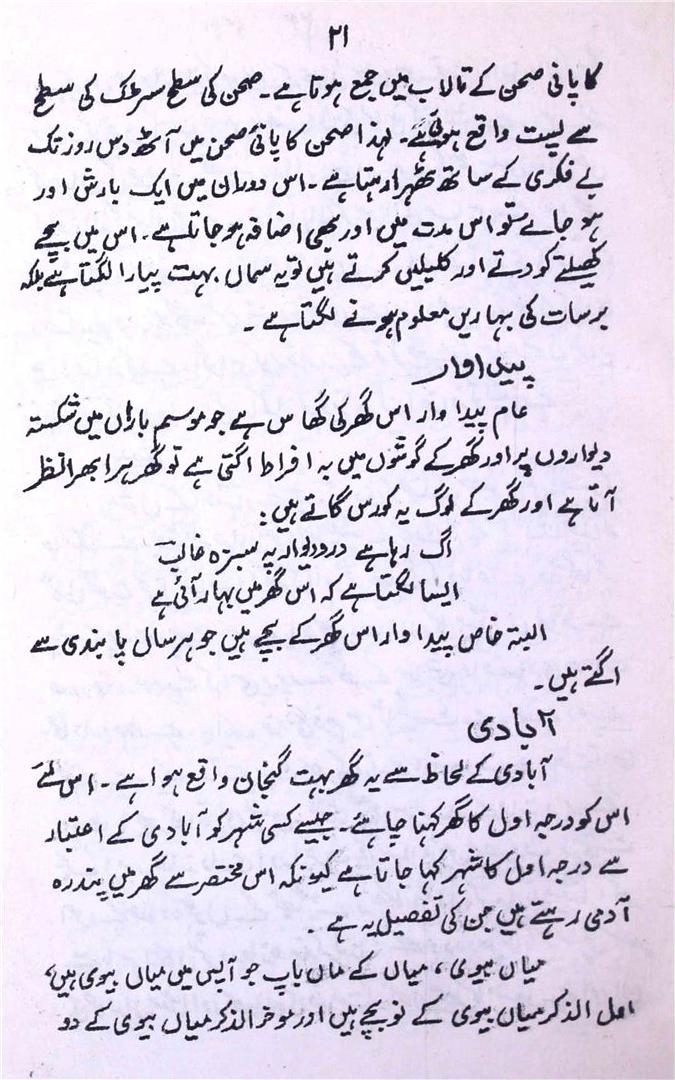 ۲۱
کا پانی صحن کے تالاب میں جمع ہوتا ہے۔ صحن کی سطح سڑک کی سطح
سے پست واقع ہوئی ہے۔ لہذا صحن کا پانی صحن میں آٹھ دس روز تک
بے فکری کے ساتھ ٹھہرا رہتا ہے۔ اس دوران میں ایک بارش اور
ہو جائے تو اس مدت میں اور بھی اضافہ ہو جاتا ہے۔ اس میں بچے
کھیلتے کودتے اور کلیلیں کرتے ہیں تو یہ سماں بہت پیارا لگتا ہے بلکہ
برسات کی بہاریں معلوم ہونے لگتا ہے۔
پیداوار
عام پیداوار اس گھر کی گھاس ہے جو موسم باراں میں شکستہ
دیواروں پر اور گھر کے گوشوں میں بہ افراط اگتی ہے تو گھر ہرا بھرا نظر
آتا ہے اور گھر کے لوگ یہ کورس گاتے ہیں:
اگ رہا ہے در و دیوار پہ سبزہ غالب
ایسا لگتا ہے کہ اس گھر میں بہار آئی ہے
البتہ خاص پیداوار اس گھر کے بچے ہیں جو ہر سال پابندی سے
اگتے ہیں۔
آبادی
آبادی کے لحاظ سے یہ گھر بہت گنجان واقع ہوا ہے۔ اس لئے
اس کو درجہ اول کا گھر کہنا چاہئے۔ جیسے کسی شہر کو آبادی کے اعتبار
سے درجہ اول کا شہر کہا جاتا ہے کیونکہ اس مختصر سے گھر میں پندرہ
آدمی رہتے ہیں جن کی تفصیل یہ ہے۔
میاں بیوی، میاں کے ماں باپ جو آپس میں میاں بیوی ہیں،
اول الذکر میاں بیوی کے نو بچے ہیں اور موخر الذکر میاں بیوی کے دو